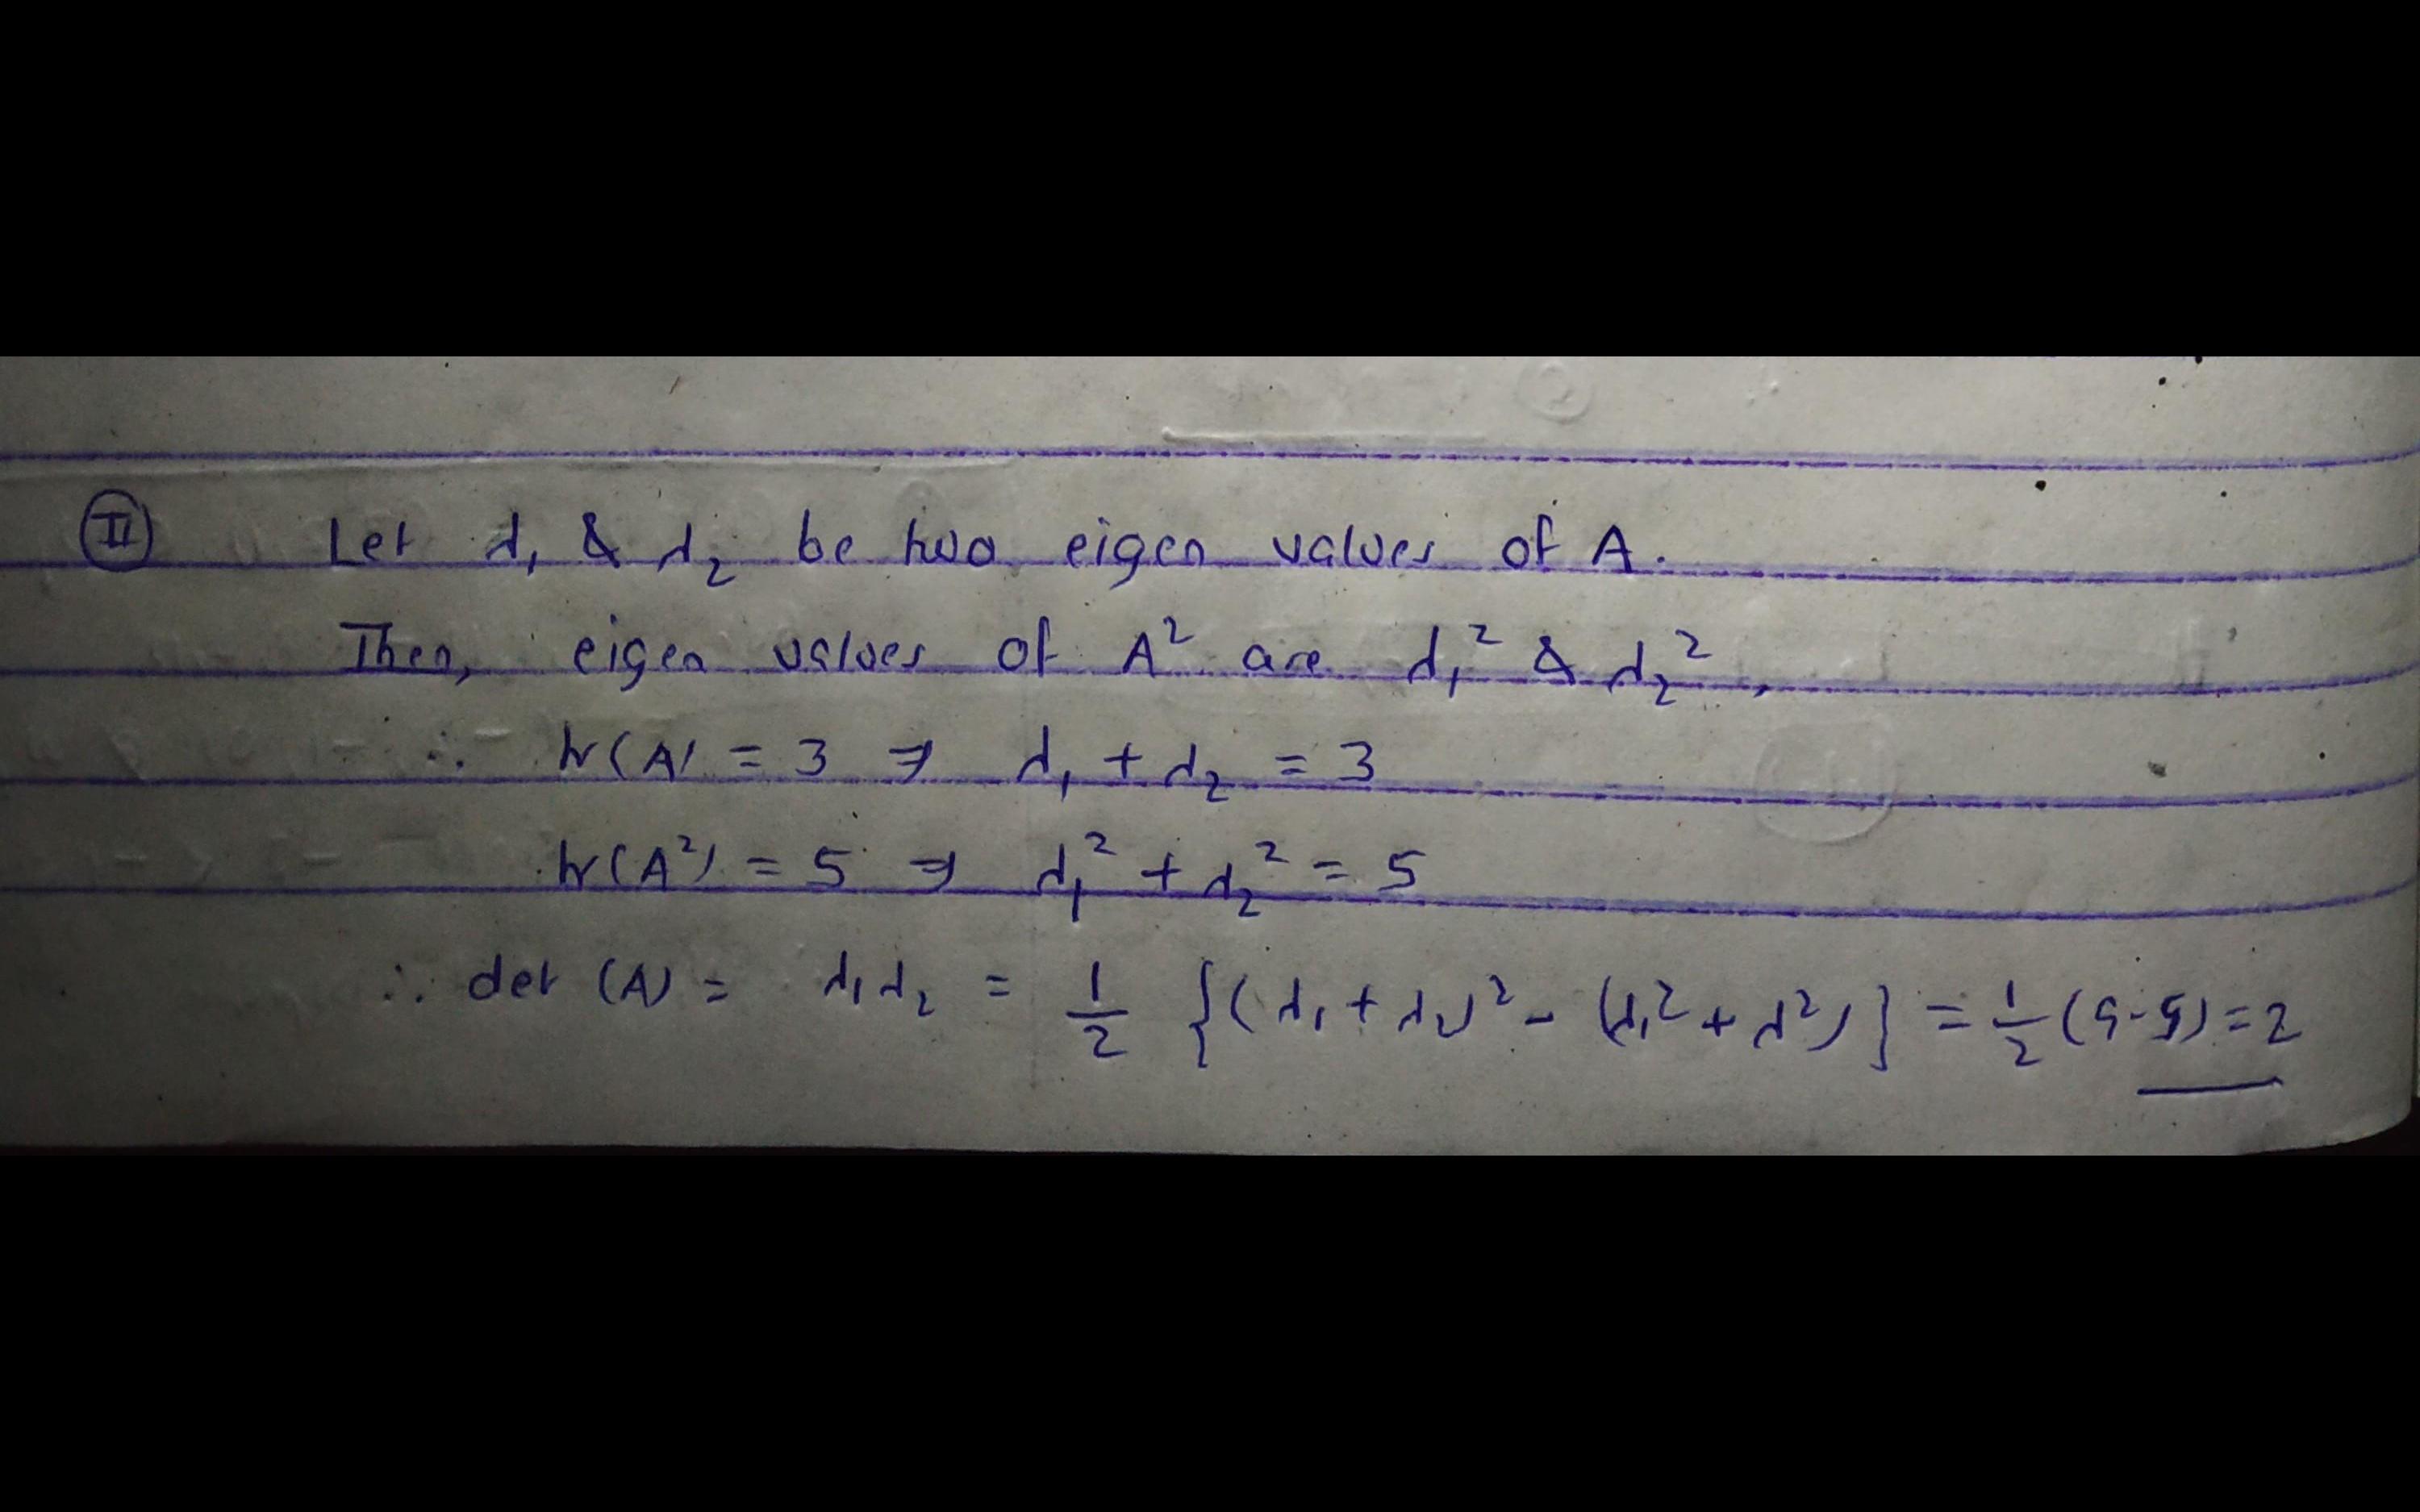 II Let λ₁ & λ₂ be two eigen values of A.
Then, eigen values of A² are λ₁² & λ₂²,
∴ tr(A) = 3 ⇒ λ₁ + λ₂ = 3
tr(A²) = 5 ⇒ λ₁² + λ₂² = 5
∴ det (A) = λ₁λ₂ = 1/2 {(λ₁ + λ₂)² - (λ₁² + λ²)} = 1/2 (9-5) = 2